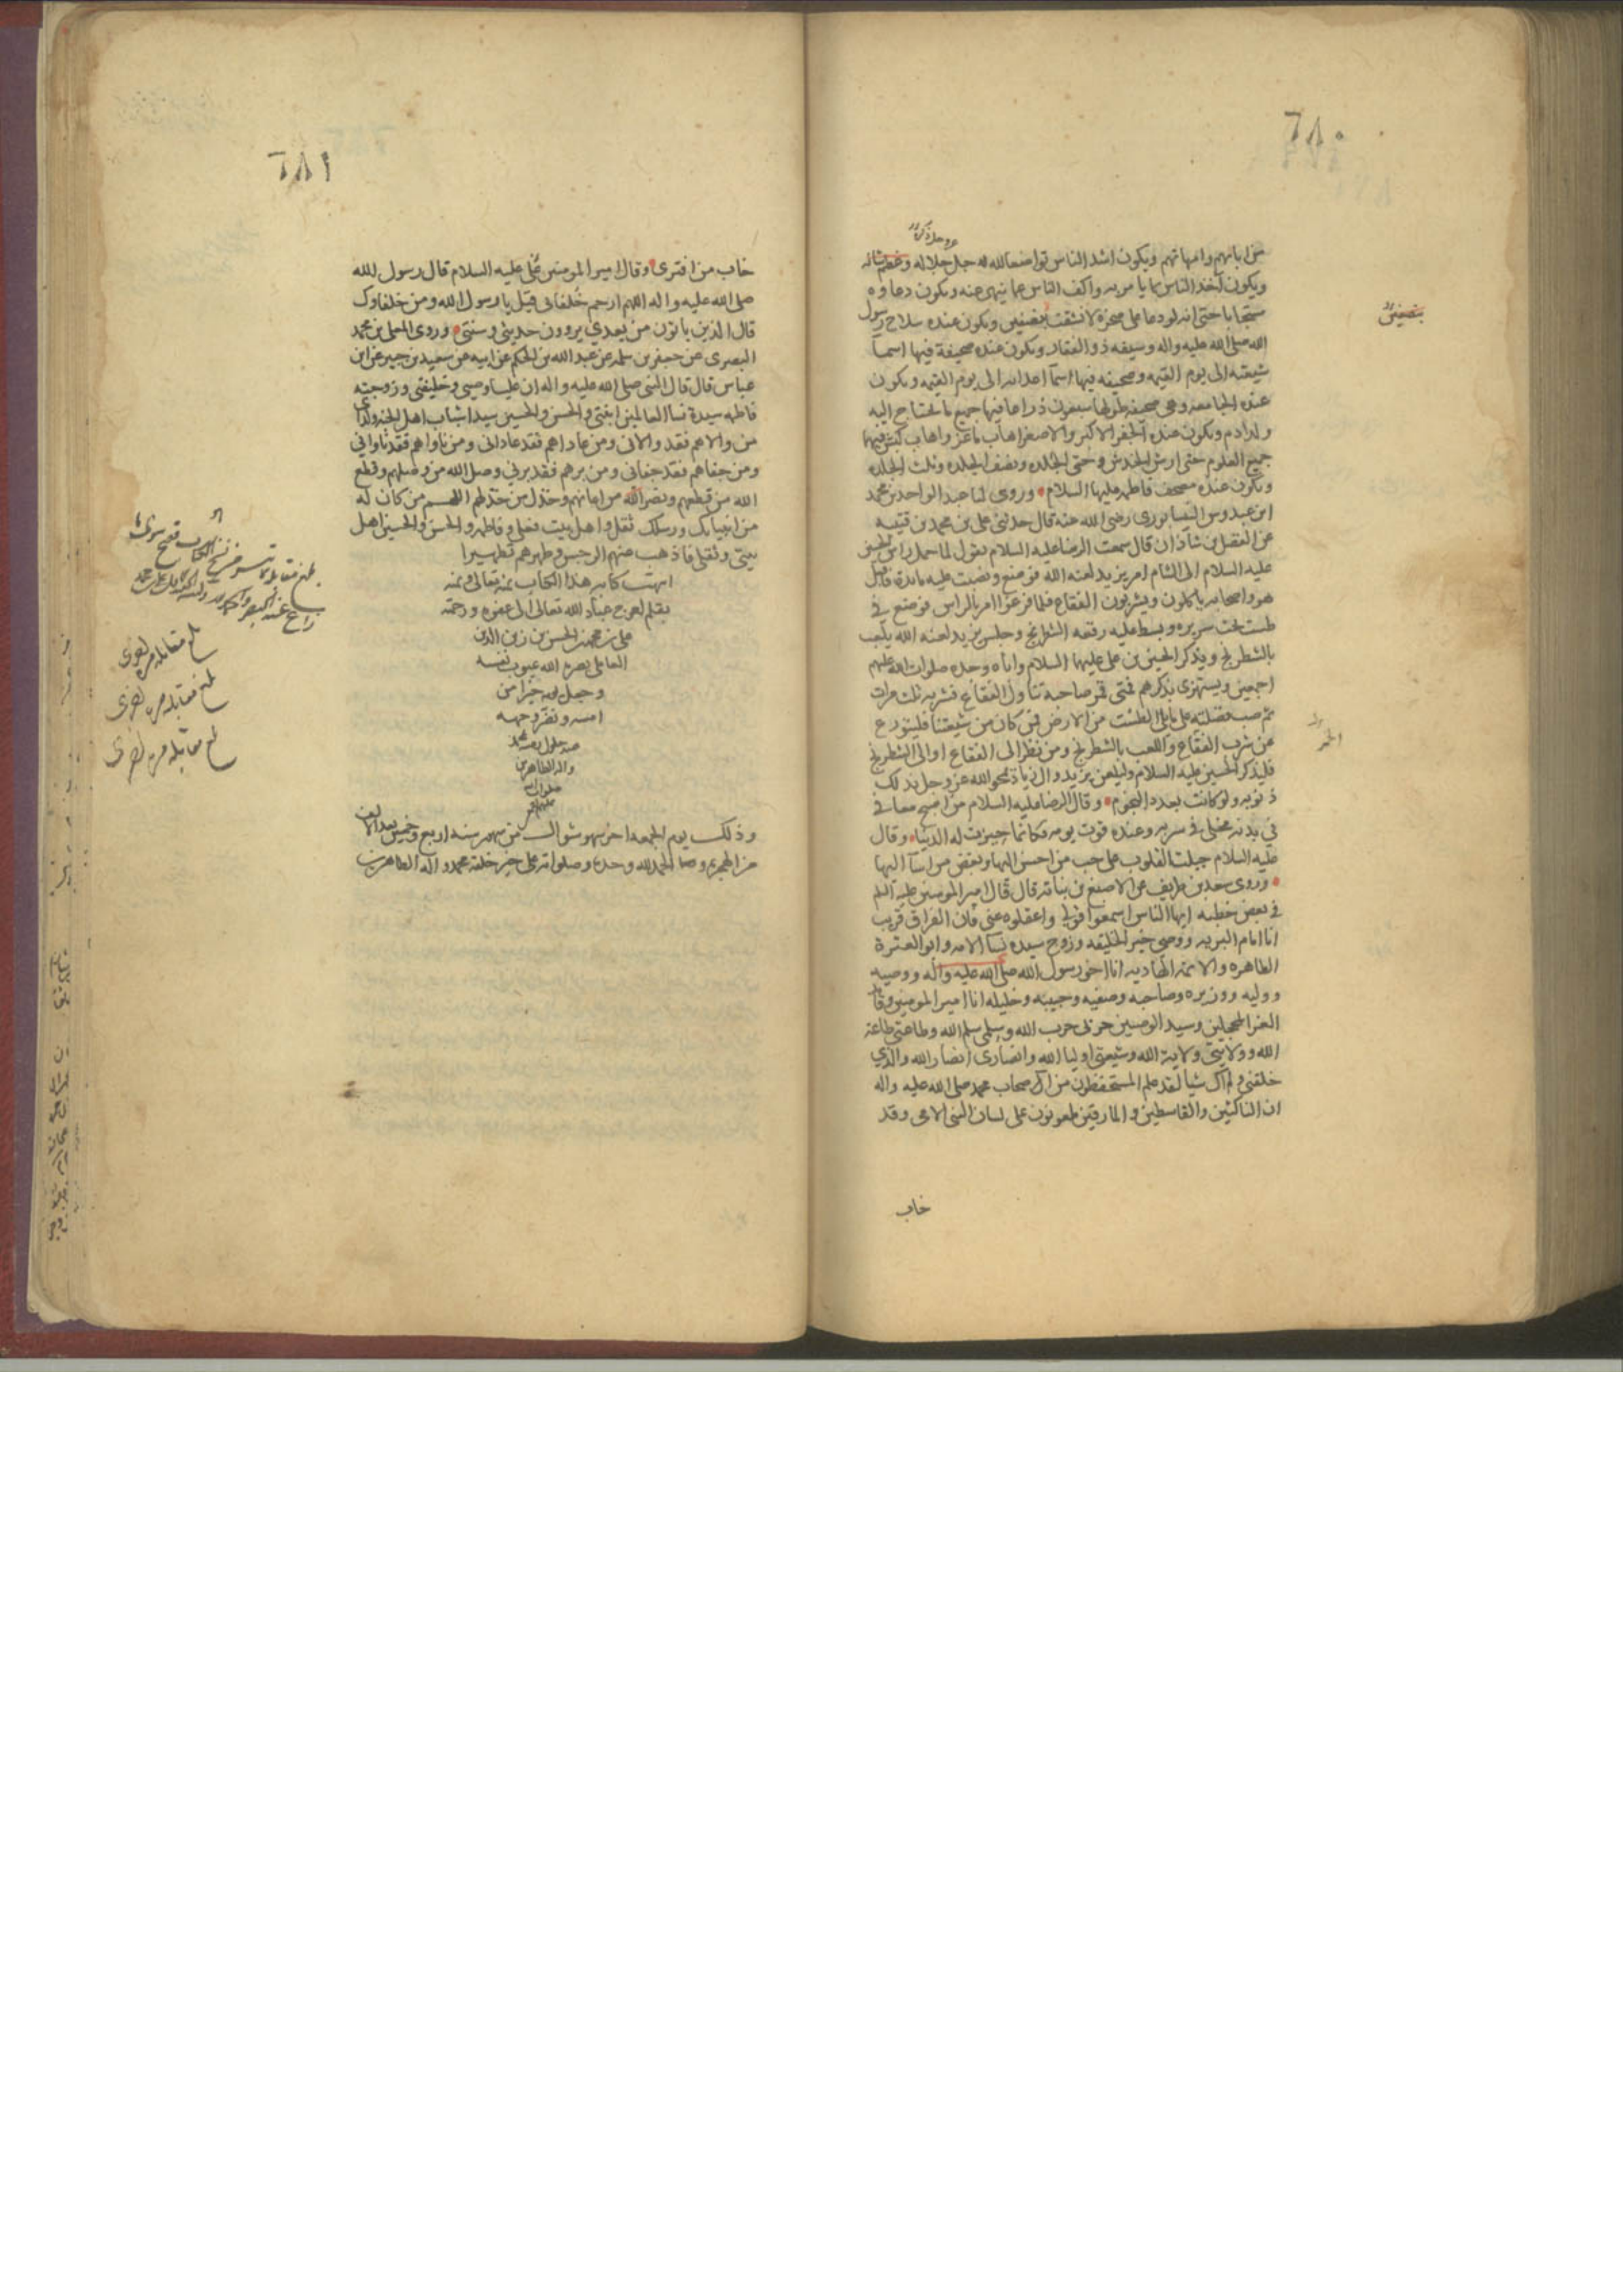 ٦٨٠
عز وجل ذكره
من ابائهم وامهاتهم ويكون اشد الناس تواضعا لله جل جلاله وعظم شانه
ويكون آخذ الناس بما يامر به واكف الناس عما ينهى عنه ويكون دعاوه
مستجابا حتى انه لو دعا على صخرة لانشقت بنصفين ويكون عنده سلاح رسول
بنصفين
الله صلى الله عليه واله وسيفه ذو الفقار ويكون عنده صحيفة فيها اسما
شيعته الى يوم القيمه وصحيفه فيها اسما اعدائه الى يوم القيمه ويكون
عنده الجامعه وهي صحيفه طولها سبعون ذراعا فيها جميع ما يحتاج اليه
ولد ادم ويكون عنده الجفر الاكبر والاصغر اهاب ماعز واهاب كبش فيهما
جميع العلوم حتى ارش الخدش وحتى الجلده ونصف الجلده وثلث الجلده
ويكون عنده مصحف فاطمه عليها السلام وروى لنا عبد الواحد بن محمد
ابن عبدوس النيسابوري رضى الله عنه قال حدثني على بن محمد بن قتيبه
عن الفضل بن شاذان قال سمعت الرضا عليه السلام يقول لما حمل راس الحسين
عليه السلام الى الشام امر يزيد لعنه الله فوضع ونصبت عليه مائدة فاقبل
هو واصحابه ياكلون ويشربون الفقاع فلما فرغوا امر بالراس فوضع في
طست تحت سريره وبسط عليه رقعه الشطرنج وجلس يزيد لعنه الله يلعب
بالشطرنج ويذكر الحسين بن على عليهما السلام واباه وجده صلوات الله عليهم
اجمعين ويستهزى بذكرهم فمتى قمر صاحبه تناول الفقاع فشربه ثلث مرات
ثم صب فضلته على ما يلى الطست من الارض فمن كان من شيعتنا فليتورع
عن شرب الفقاع واللعب بالشطرنج ومن نظر الى الفقاع او الى الشطرنج
فليذكر الحسين عليه السلام وليلعن يزيد وال زياد يمحو الله عز وجل بذلك
ذنوبه ولو كانت بعدد النجوم وقال الرضا عليه السلام من اصبح معافى
في بدنه مخلى في سربه وعنده قوت يومه فكانما حيزت له الدنيا وقال
عليه السلام جبلت القلوب على حب من احسن اليها وبغض من اسآ اليها
وروى سعد بن طريف عن الاصبغ بن نباته قال قال امير المومنين عليه السلم
في بعض خطبه ايها الناس اسمعوا قولي واعقلوه عني فان الفراق قريب
انا امام البريه ووصي خير الخليقه وزوج سيده نسا الامه وابو العترة
الطاهره والائمه الهاديه انا اخو رسول الله صلى الله عليه واله ووصيه
ووليه ووزيره وصاحبه وصفيه وحبيبه وخليله انا امير المومنين وقائد
الغر المحجلين وسيد الوصيين حربي حرب الله وسلمي سلم الله وطاعتي طاعة
الله وولايتي ولاية الله وشيعتي اوليا الله وانصارى انصار الله والذي
خلقني ولم اك شيا لقد علم المستحفظون من اصحاب محمد صلى الله عليه واله
ان الناكثين والقاسطين والمارقين ملعونون على لسان النبي الامي وقد
خاب
٦٨١
خاب من افترى وقال امير المومنين على عليه السلام قال رسول الله
صلى الله عليه واله اللهم ارحم خلفائى قيل يا رسول الله ومن خلفاوك
قال الذين ياتون من بعدي يروون حديثي وسنتي وروى المعلى بن محمد
البصرى عن جعفر بن سلمه عن عبد الله بن الحكم عن ابيه عن سعيد بن جبير عن ابن
عباس قال قال النبي صلى الله عليه واله ان عليا وصيي وخليفتي وزوجته
فاطمه سيدة نسا العالمين ابنتي والحسن والحسين سيدا شباب اهل الجنه ولداى
من والاهم فقد والانى ومن عاداهم فقد عادانى ومن ناواهم فقد ناواني
ومن جفاهم فقد جفانى ومن برهم فقد برني وصل الله من وصلهم وقطع
الله من قطعهم ونصر الله من اعانهم وخذل من خذلهم اللهم من كان له
من انبيائك ورسلك ثقل واهل بيت فعلى وفاطمه والحسن والحسين اهل
بيتي وثقلى فاذهب عنهم الرجس وطهرهم تطهيرا
انتهت كتابه هذا الكتاب بمنه تعالى ويمنه
بقلم احوج عباد الله تعالى الى عفوه ورحمته
على بن محمد بن الحسن بن زين الدين
العاملى بصره الله عيوب نفسه
وجعل يومه خيرا من
امسه ونضر وجهه
واله الطاهرين
صلوات الله
وذلك يوم الجمعه اخر شهر شوال من شهور سنه اربع وخمسين بعد الالف
من الهجريه والحمد لله وحده وصلواته على خير خلقه محمد واله الطاهرين
بلغ مقابله مره اخرى
بلغ مقابله مره اخرى
بلغ مقابله مره اخرى